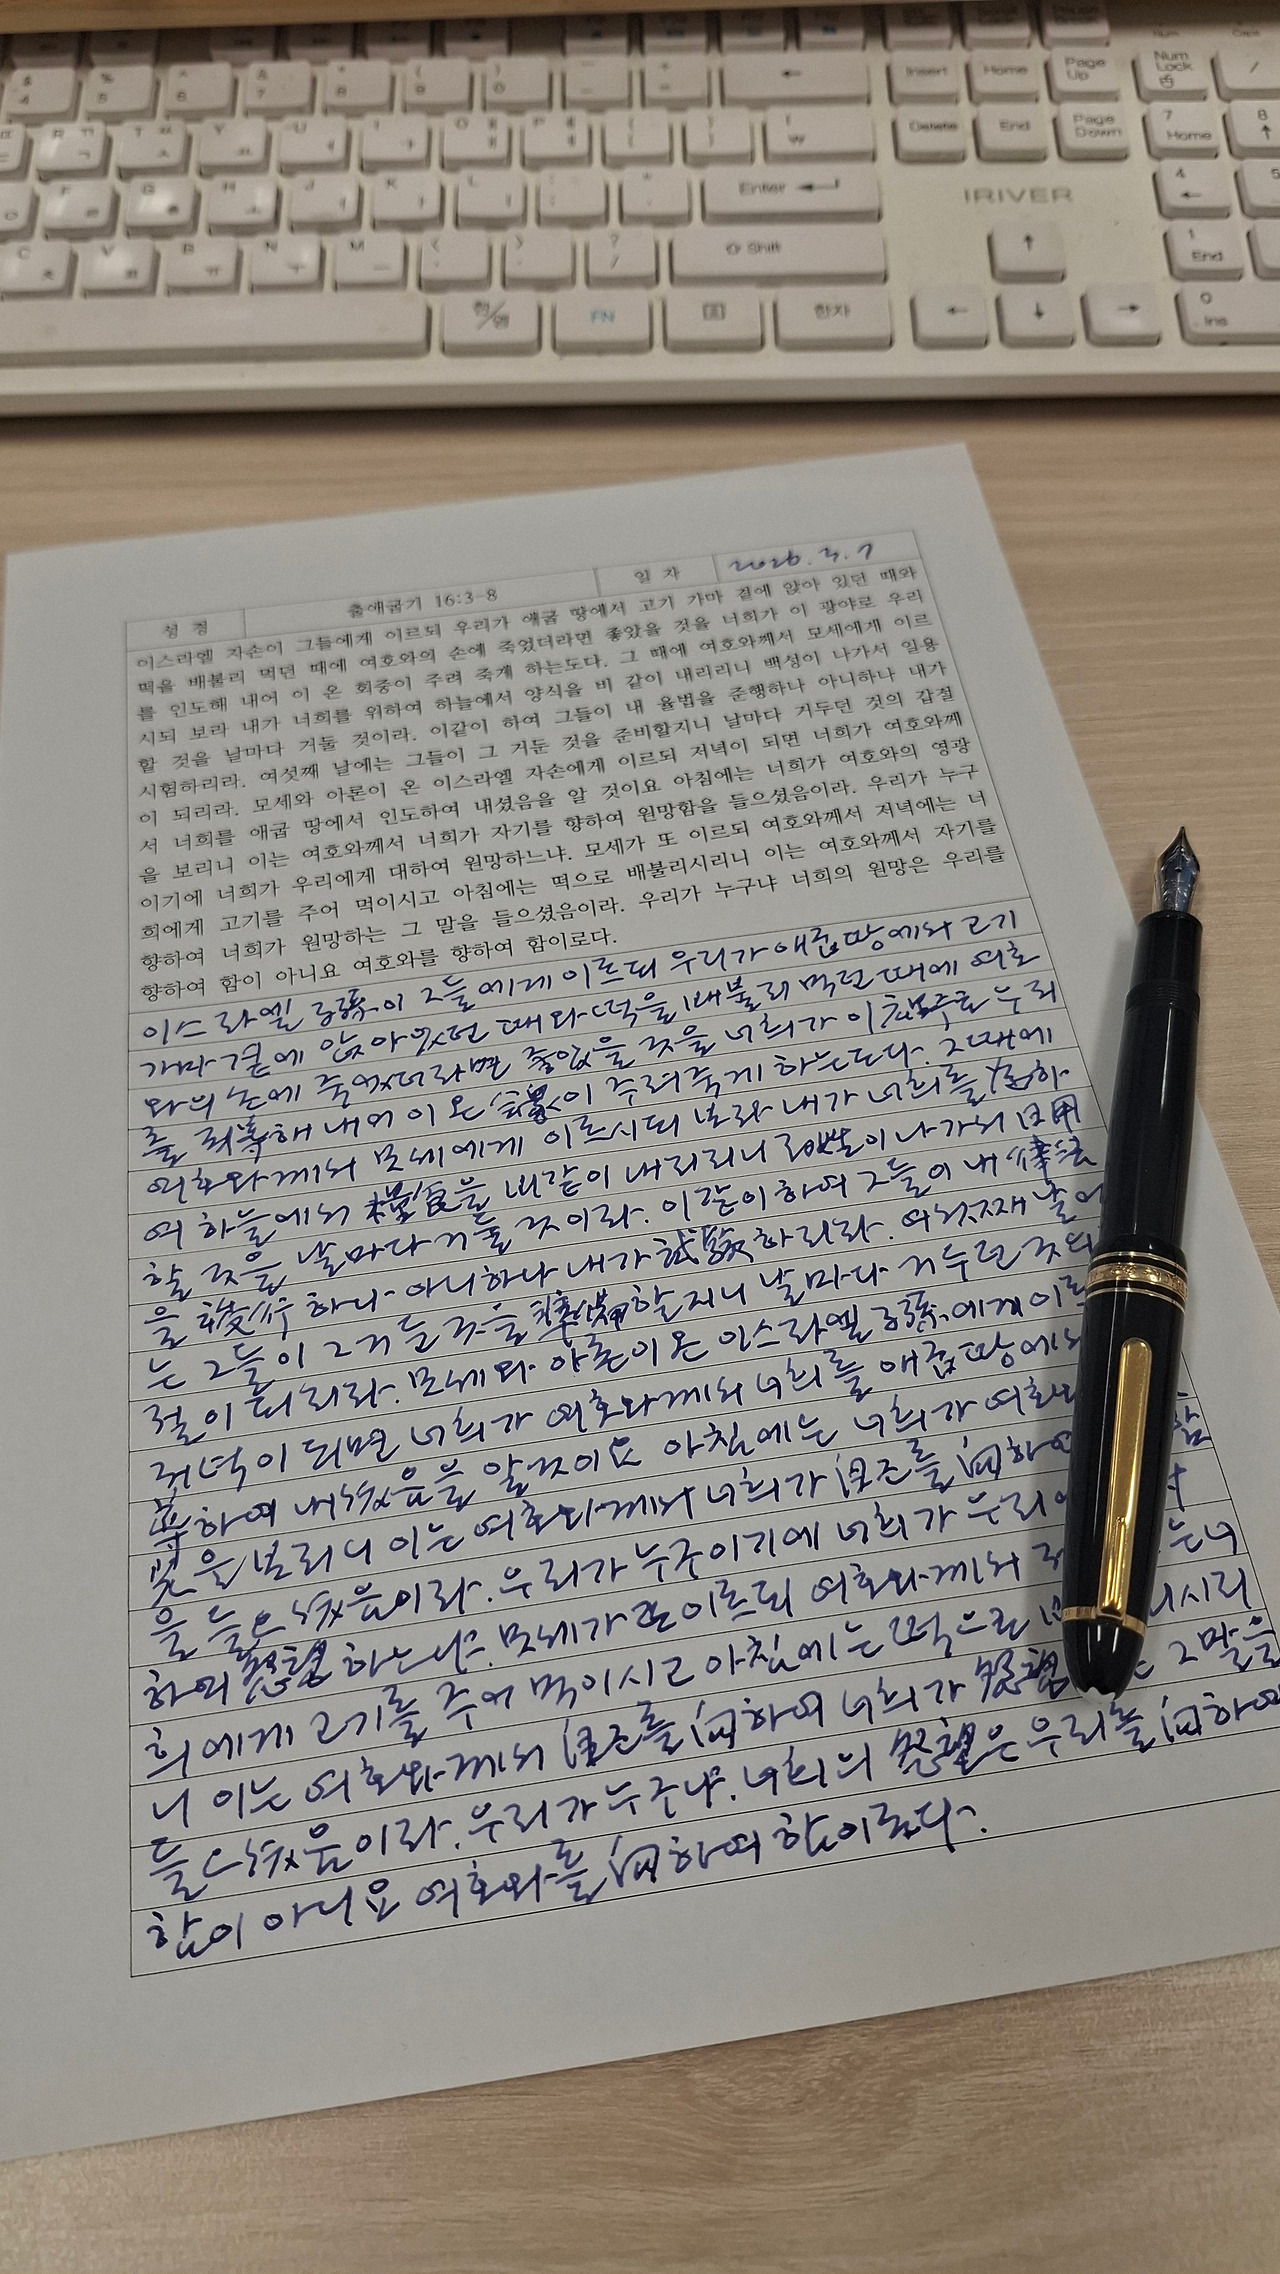 Insert Home Page Up Num Lock
Delete End Page Down 7 Home 8
Enter
IRIVER
4 5
Shift
1 End
한/영 FN 한자
0 Ins
성 경 출애굽기 16:3-8 일 자 2026. 3. 7
이스라엘 자손이 그들에게 이르되 우리가 애굽 땅에서 고기 가마 곁에 앉아 있던 때와
떡을 배불리 먹던 때에 여호와의 손에 죽었더라면 좋았을 것을 너희가 이 광야로 우리
를 인도해 내어 이 온 회중이 주려 죽게 하는도다. 그 때에 여호와께서 모세에게 이르
시되 보라 내가 너희를 위하여 하늘에서 양식을 비 같이 내리리니 백성이 나가서 일용
할 것을 날마다 거둘 것이라. 이같이 하여 그들이 내 율법을 준행하나 아니하나 내가
시험하리라. 여섯째 날에는 그들이 그 거둔 것을 준비할지니 날마다 거두던 것의 갑절
이 되리라. 모세와 아론이 온 이스라엘 자손에게 이르되 저녁이 되면 너희가 여호와께
서 너희를 애굽 땅에서 인도하여 내셨음을 알 것이요 아침에는 너희가 여호와의 영광
을 보리니 이는 여호와께서 너희가 자기를 향하여 원망함을 들으셨음이라. 우리가 누구
이기에 너희가 우리에게 대하여 원망하느냐. 모세가 또 이르되 여호와께서 저녁에는 너
희에게 고기를 주어 먹이시고 아침에는 떡으로 배불리시리니 이는 여호와께서 자기를
향하여 너희가 원망하는 그 말을 들으셨음이라. 우리가 누구냐 너희의 원망은 우리를
향하여 함이 아니요 여호와를 향하여 함이로다.
이스라엘 子孫이 그들에게 이르되 우리가 애굽땅에서 고기
가마 곁에 앉아있던 때와 떡을 배불리 먹던 때에 여호
와의 손에 죽었더라면 좋았을 것을 너희가 이 우리
를 해 내어 이 온 이 주려죽게 하는도다. 그때에
여호와께서 모세에게 이르시되 보라 내가 너희를 爲하
여 하늘에서 糧食을 비같이 내리리니 百姓이 나가서 日用
할 것을 날마다 거둘 것이라. 이같이 하여 그들이 내 律法
을 行하나 아니하나 내가 試驗하리라. 여섯째 날에
는 그들이 그 거둔것을 準備할지니 날마다 거두던 것의
절이 되리라. 모세와 아론이 온 이스라엘 子孫에게 이르
저녁이 되면 너희가 여호와께서 너희를 애굽땅에서
導하여 내셨음을 알것이요 아침에는 너희가 여호와
光을 보리니 이는 여호와께서 너희가 自己를 向하여 함
을 들으셨음이라. 우리가 누구이기에 너희가 우리에
하여 怨望하느냐. 모세가 또 이르되 여호와께서 저 는 너
희에게 고기를 주어 먹이시고 아침에는 떡으로 니시리
니 이는 여호와께서 自己를 向하여 너희가 怨望 는 그 말을
들으셨음이라. 우리가 누구냐. 너희의 怨望은 우리를 向하여
함이 아니요 여호와를 向하여 함이로다.